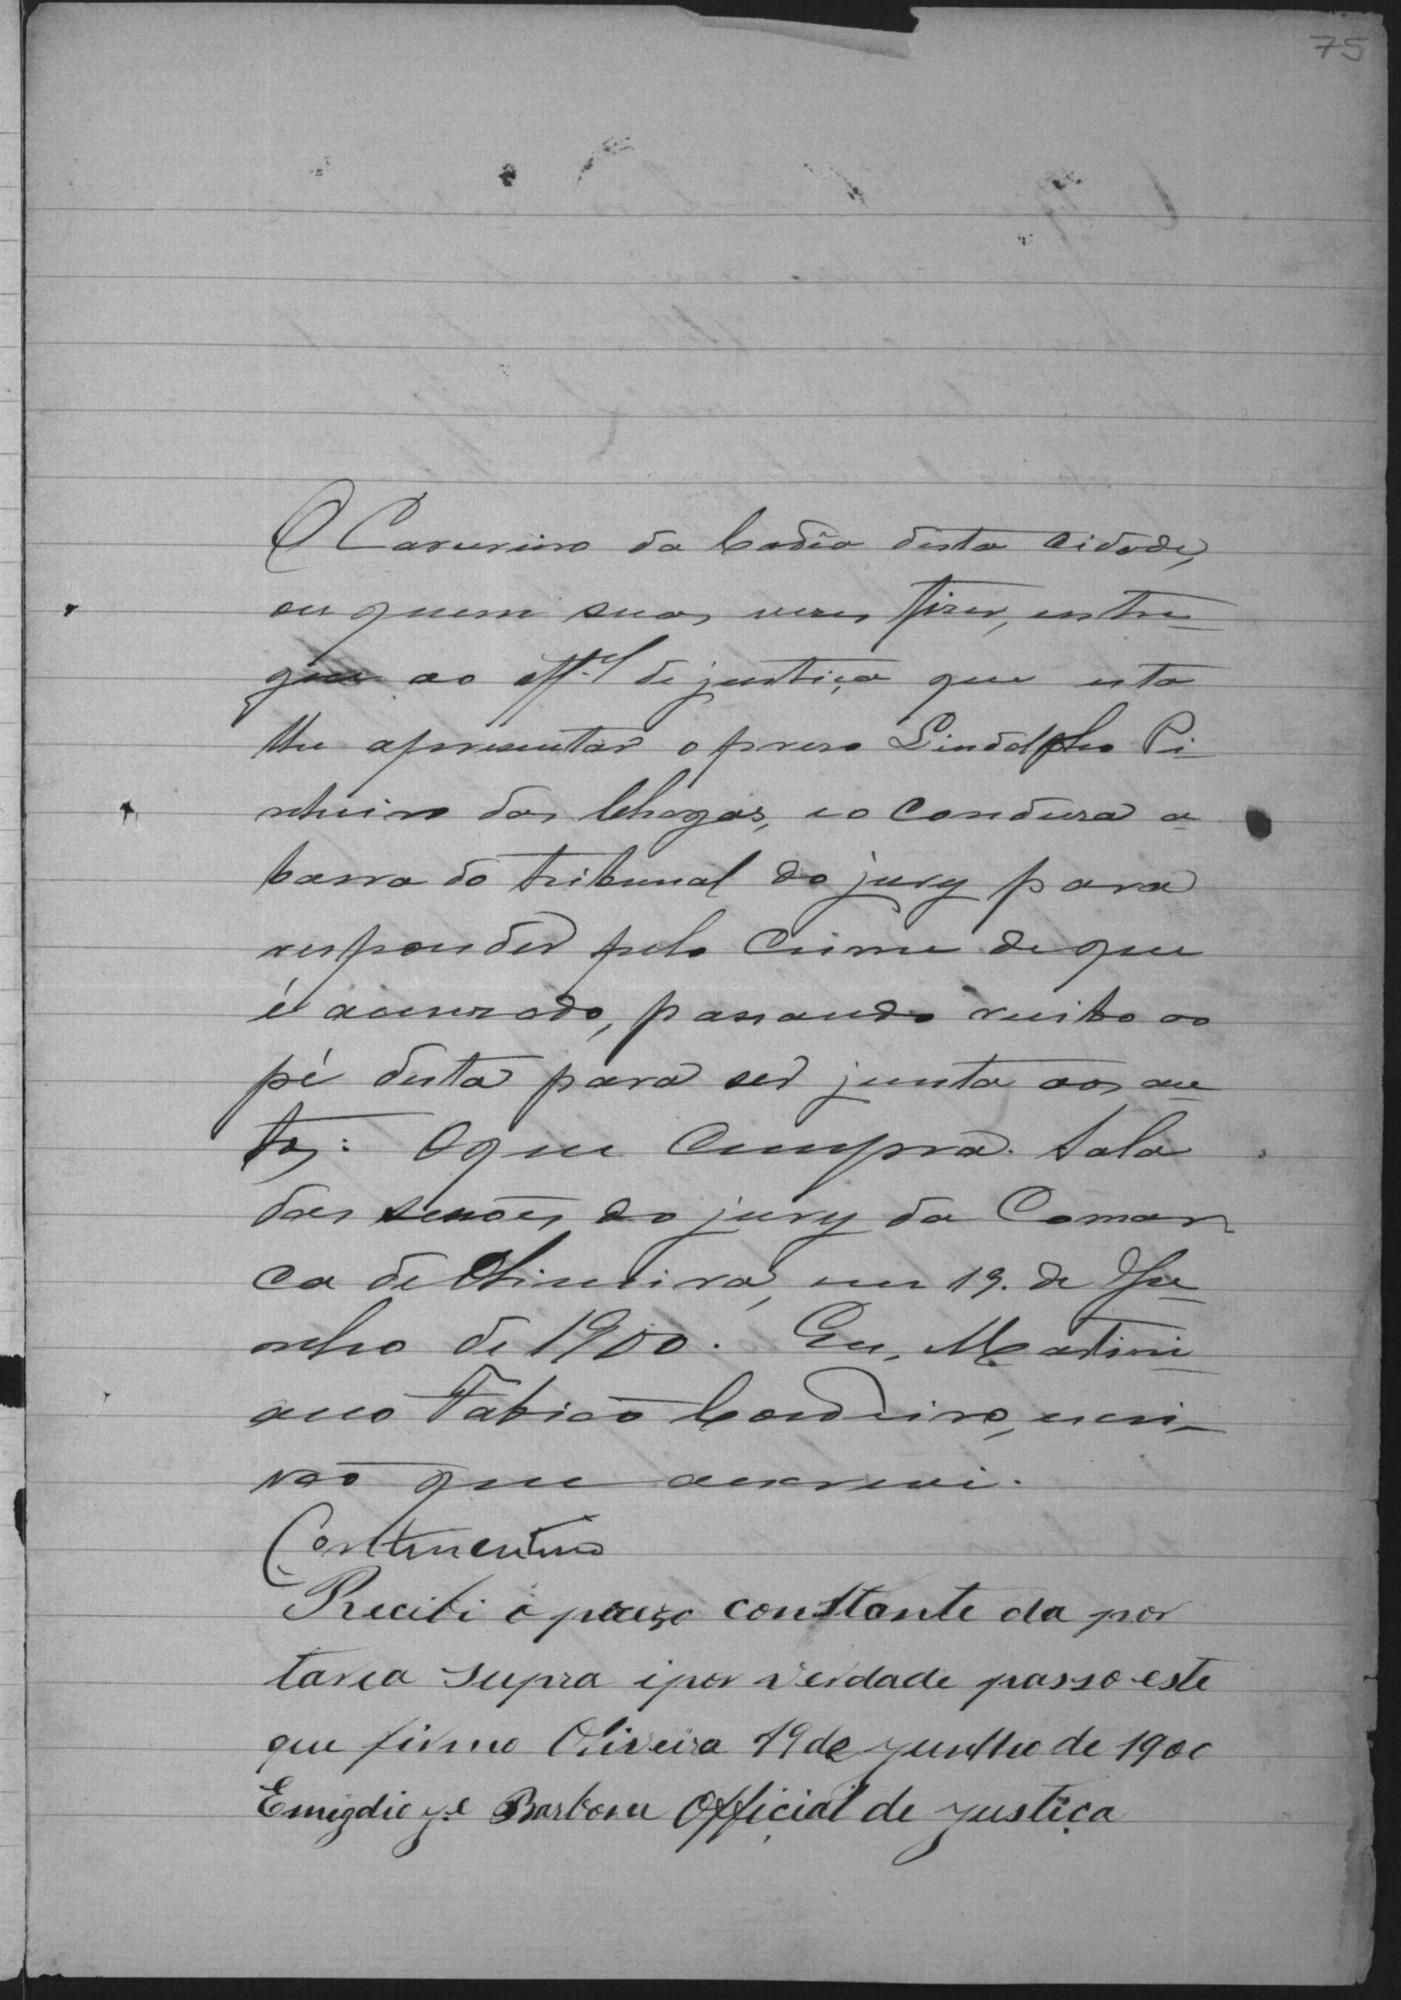 75
O Carcereiro da Cadêa desta Cidade,
ou quem suas vezes fizer, entre-
gue ao Off.al de justiça que esta
lhe apresentar o preso Lindolpho Pi-
nheiro das Chagas, e o condusa a
barra do tribunal do jury para
responder pelo crime de que
é accusado, passando recibo ao
pé desta para ser junta aos au-
tos: O que cumpra. Sala
das sessões do jury da Comar-
ca de Oliveira, em 19. de Ju-
nho de 1900. Eu, Martini
ano Fabião Cordeiro, escri-
vão que escrevi.
Continentino
Recibi o prezo constante da por
taria supra i por verdade passo este
que firmo Oliveira 19 de junlho de 1900
Emigdio J.e Barbosa Official de justiça